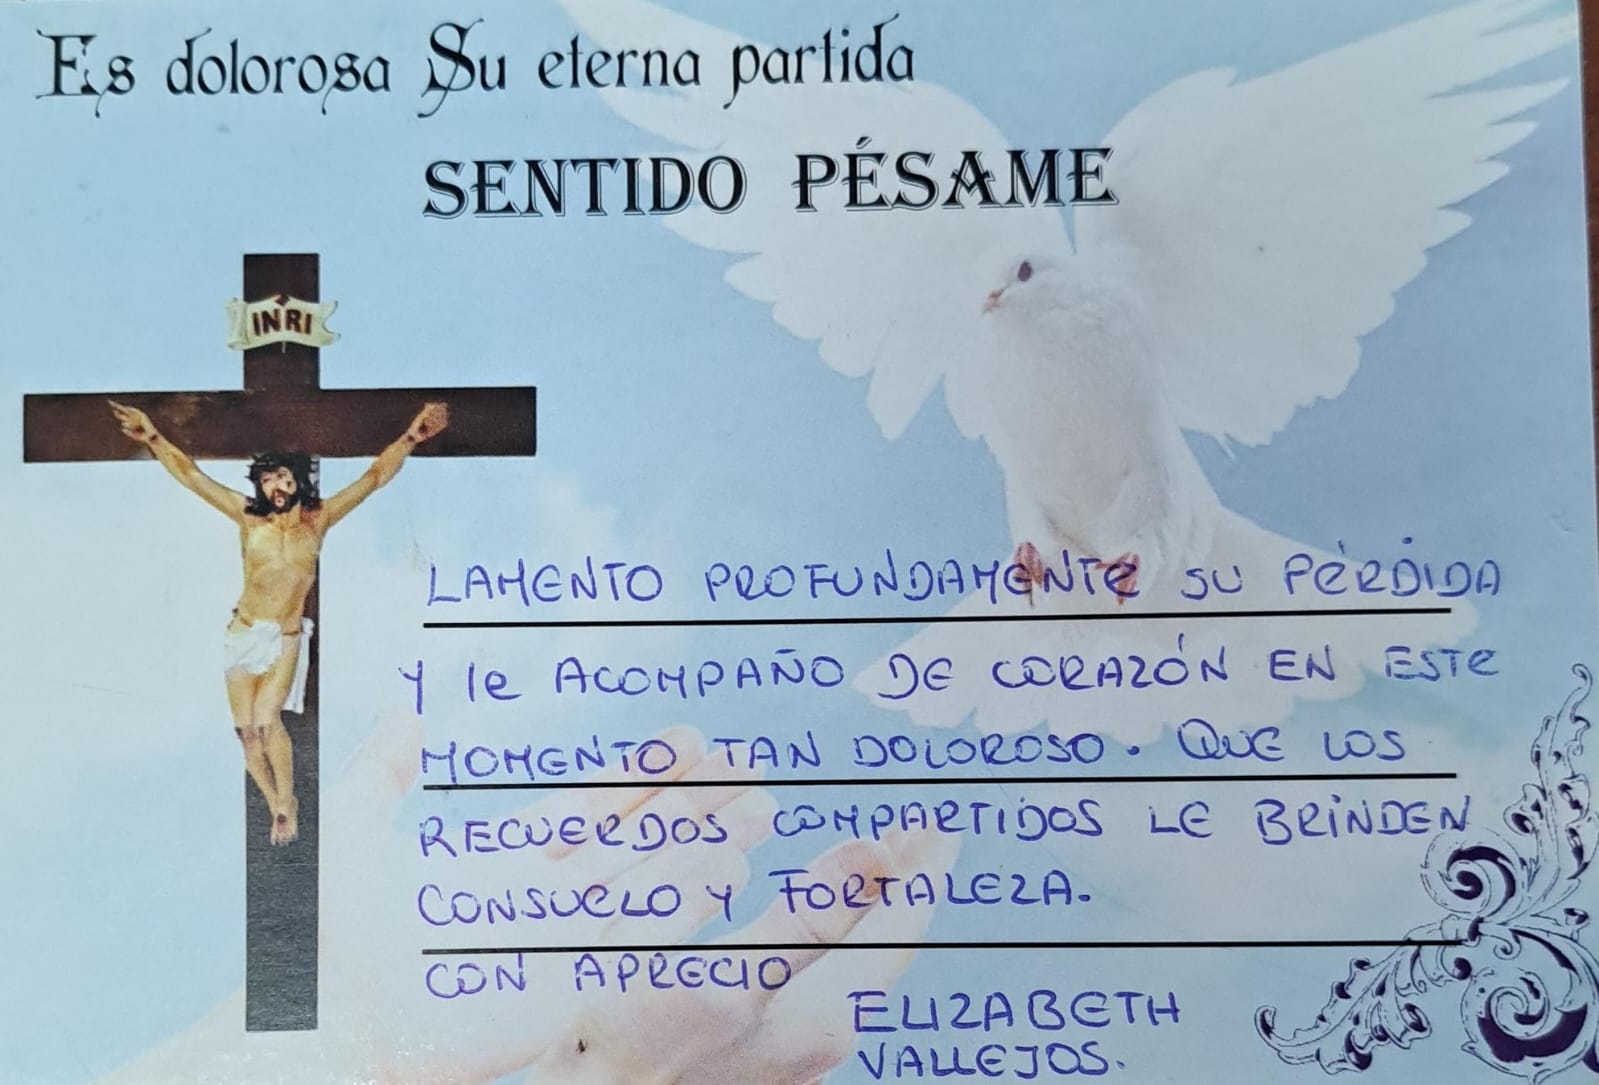 Es dolorosa Su eterna partida
SENTIDO PÉSAME
INRI
LAMENTO PROFUNDAMENTE SU PÉRDIDA
Y le ACOMPAÑO DE CORAZÓN EN ESTE
MOMENTO TAN DOLOROSO. QUE LOS
RECUERDOS COMPARTIDOS LE BRINDEN
CONSUELO Y FORTALEZA.
CON APRECIO
ELIZABETH
VALLEJOS.